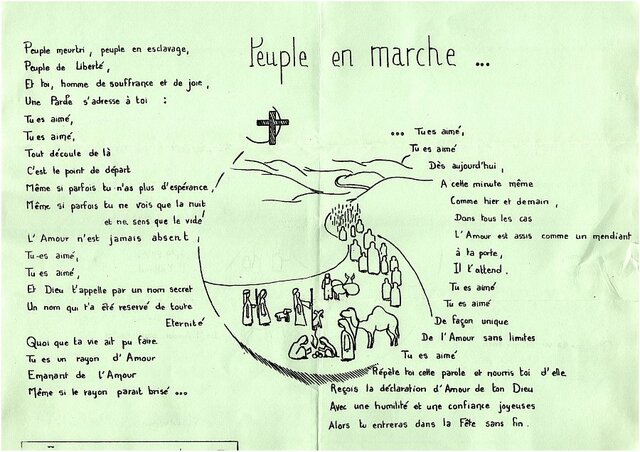 Peuple en marche ...
Peuple meurtri, peuple en esclavage,
Peuple de Liberté,
Et toi, homme de souffrance et de joie,
Une Parole s'adresse à toi :
Tu es aimé,
Tu es aimé,
Tout découle de là
C'est le point de départ
Même si parfois tu n'as plus d'espérance,
Même si parfois tu ne vois que la nuit
et ne sens que le vide
L'Amour n'est jamais absent,
Tu es aimé,
Tu es aimé,
Et Dieu t'appelle par un nom secret
Un nom qui t'a été reservé de toute
Eternité
Quoi que ta vie ait pu faire
Tu es un rayon d'Amour
Emanant de l'Amour
Même si le rayon parait brisé ...
... Tu es aimé,
Tu es aimé
Dès aujourd'hui,
A cette minute même
Comme hier et demain,
Dans tous les cas
L'Amour est assis comme un mendiant
à ta porte,
Il t'attend.
Tu es aimé
Tu es aimé
De façon unique
De l'Amour sans limites
Tu es aimé
Répète toi cette parole et nourris toi d'elle
Reçois la déclaration d'Amour de ton Dieu
Avec une humilité et une confiance joyeuses
Alors tu entreras dans la Fête sans fin.